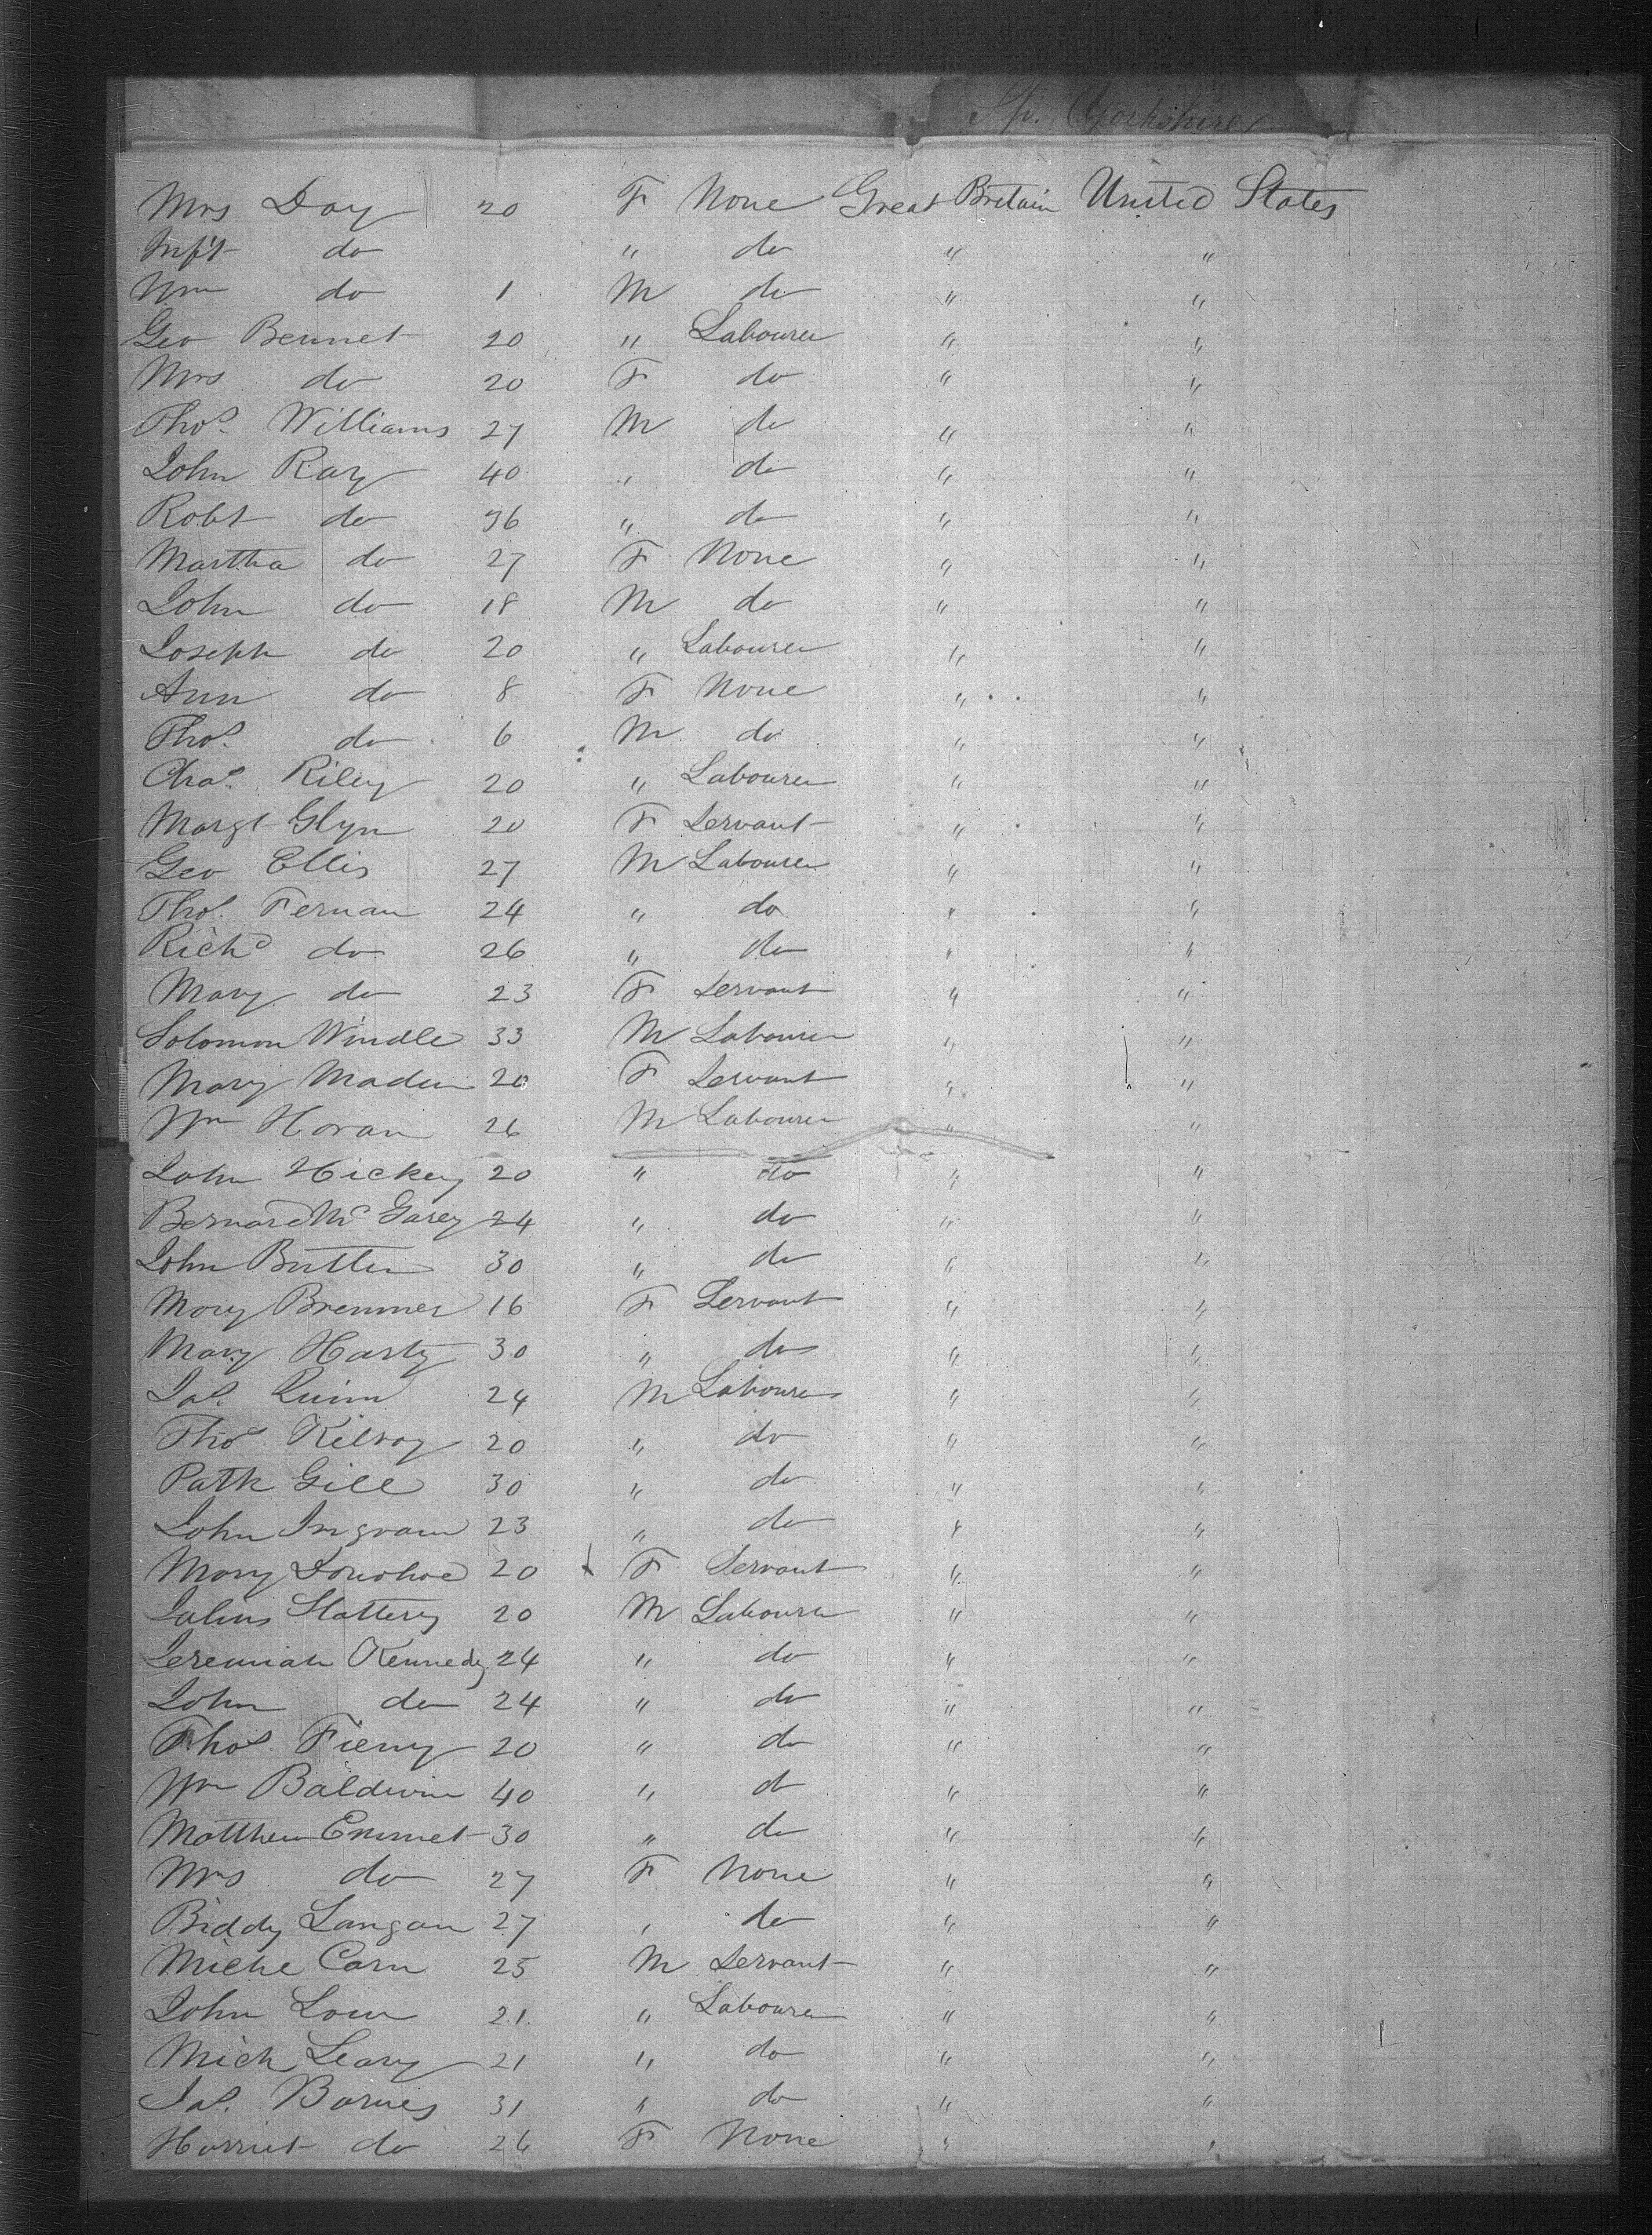 Sp. Yorkshire
Mrs Day 20 F None Great Britain United States
Inft do " do " "
Wm do 1 M do " "
Geo Bennet 20 " Labourer " "
Mrs do 20 F do " "
Thos. Williams 27 M do " "
John Ray 40 " do " "
Robt do 36 " do " "
Martha do 27 F None " "
John do 18 M do " "
Joseph do 20 " Labourer " "
Ann do 8 F None " "
Thos. do 6 M do " "
Chas. Riley 20 " Labourer " "
Margt Glyn 20 F Servant " "
Geo Ellis 27 M Labourer " "
Thos. Fernan 24 " do " "
Richd do 26 " do " "
Mary do 23 F Servant " "
Solomon Windle 33 M Labourer " "
Mary Maden 20 F Servant " "
Wm Horan 26 M Labourer " "
John Hickey 20 " do " "
Bernard Mc Garey 24 " do " "
John Butler 30 " do " "
Mary Bremner 16 F Servant " "
Mary Harty 30 " do " "
Jas. Quinn 24 M Labourer " "
Thos Kilroy 20 " do " "
Patk Gill 30 " do " "
John Ingram 23 " do " "
Mary Donohoe 20 F Servant " "
Julius Slattery 20 M Labourer " "
Jeremiah Kennedy 24 " do " "
John do 24 " do " "
Thos. 20 " do " "
Wm Baldwin 40 " d " "
Matthew Emmet 30 " do " "
Mrs do 27 F None " "
Biddy Langan 27 " do " "
Michl Carn 25 M Servant " "
John Low 21 " Labourer " "
Mich Leary 21 " do " "
Jas. Barnes 31 " do " "
Harriet do 26 F None " "